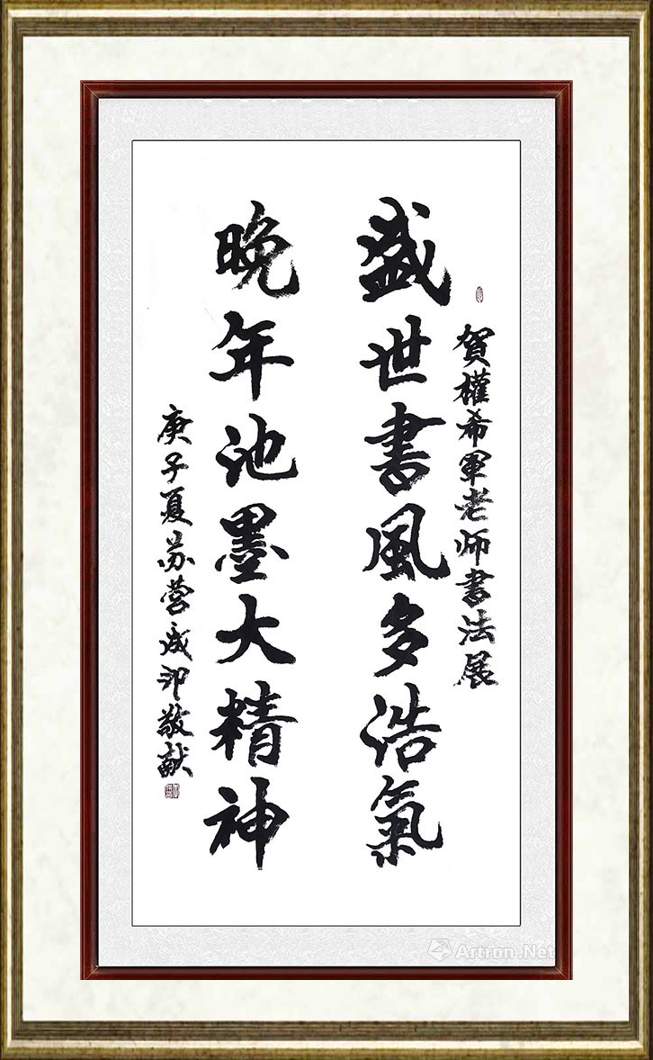 賀權希軍老师書法展
盛世書風多浩氣
晚年池墨大精神
庚子夏苏营成印敬献
Artron.Net